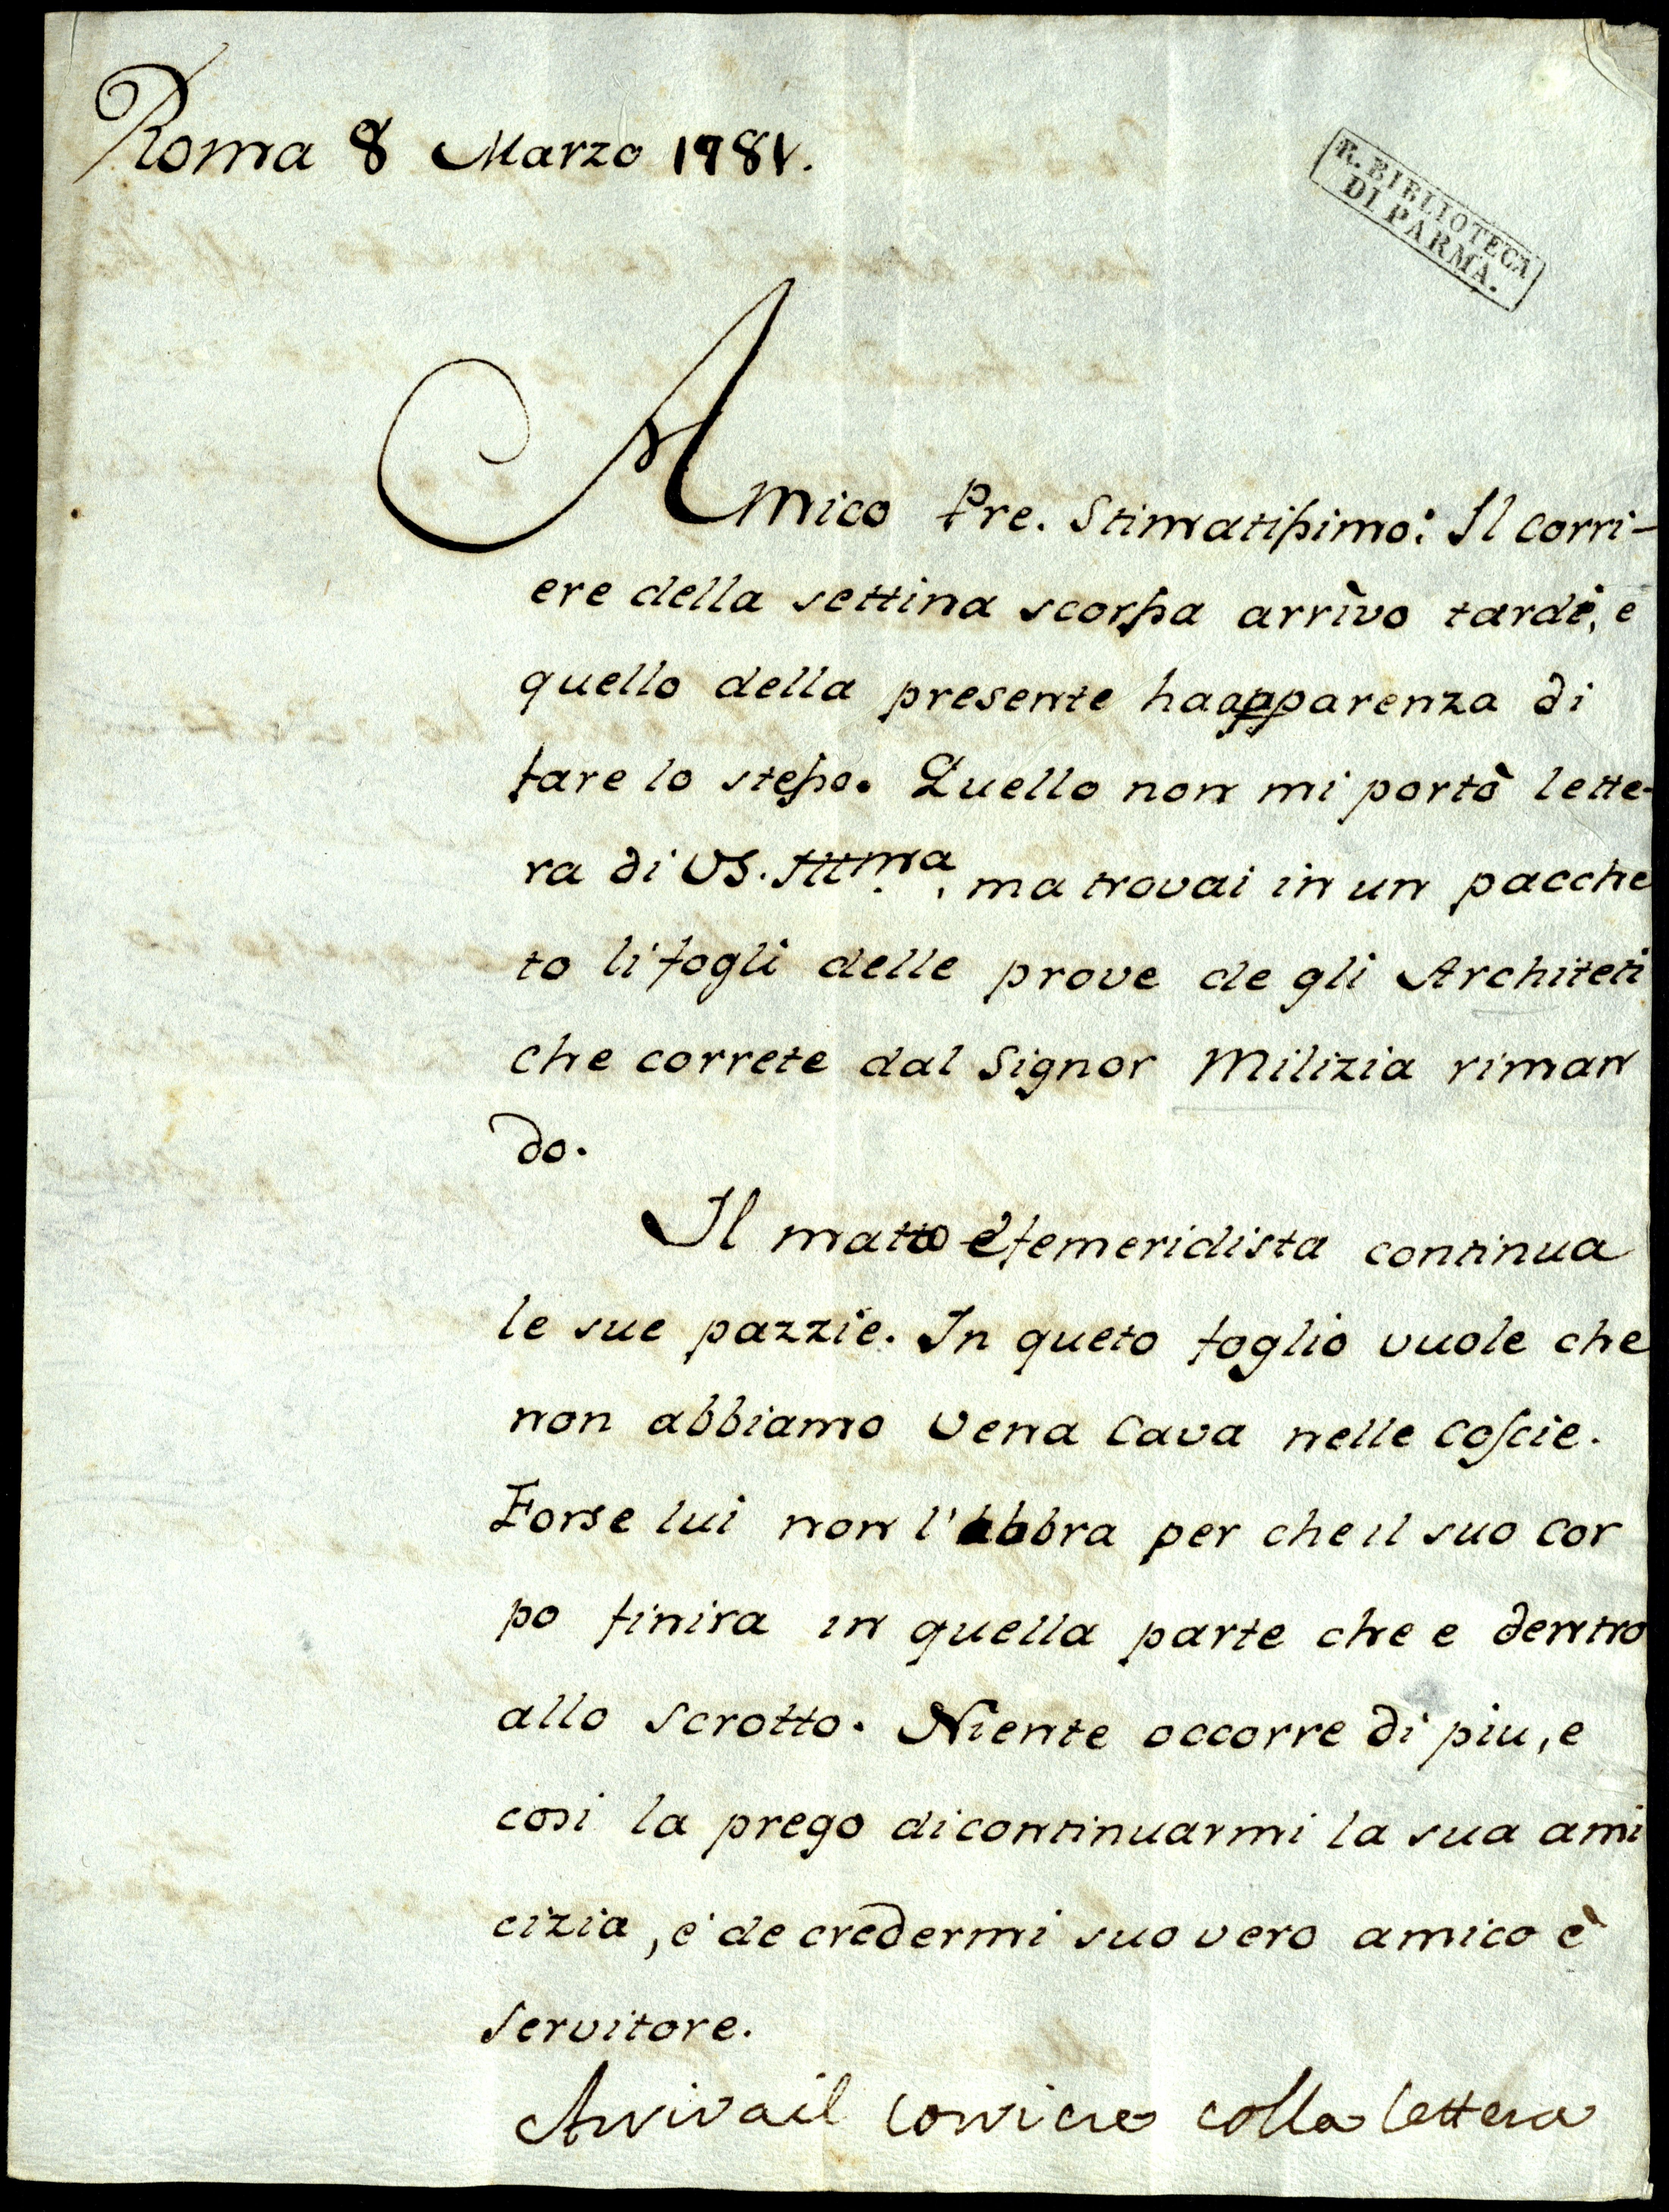 Roma 8 Marzo 1781.
R. BIBLIOTECA
DI PARMA.
Amico Pre. Stimatissimo: Il corri-
ere della settina scorssa arrivo tardi, e
quello della presente haapparenza di
fare lo stesso. Quello non mi portò lette-
ra di VS. Illma, ma trovai in un pacche
to li fogli delle prove de gli Architeti
che correte dal Signor Milizia riman
do.
Il matto efemeridista continua
le sue pazzie. In queto foglio vuole che
non abbiamo vena cava nelle coscie.
Forse lui non l'abbra per che il suo cor
po finira in quella parte che e dentro
allo scrotto. Niente occorre di piu, e
cosi la prego dicontinuarmi la sua ami
cizia, e de credermi suo vero amico è
servitore.
Arriva il corriere colla lettera